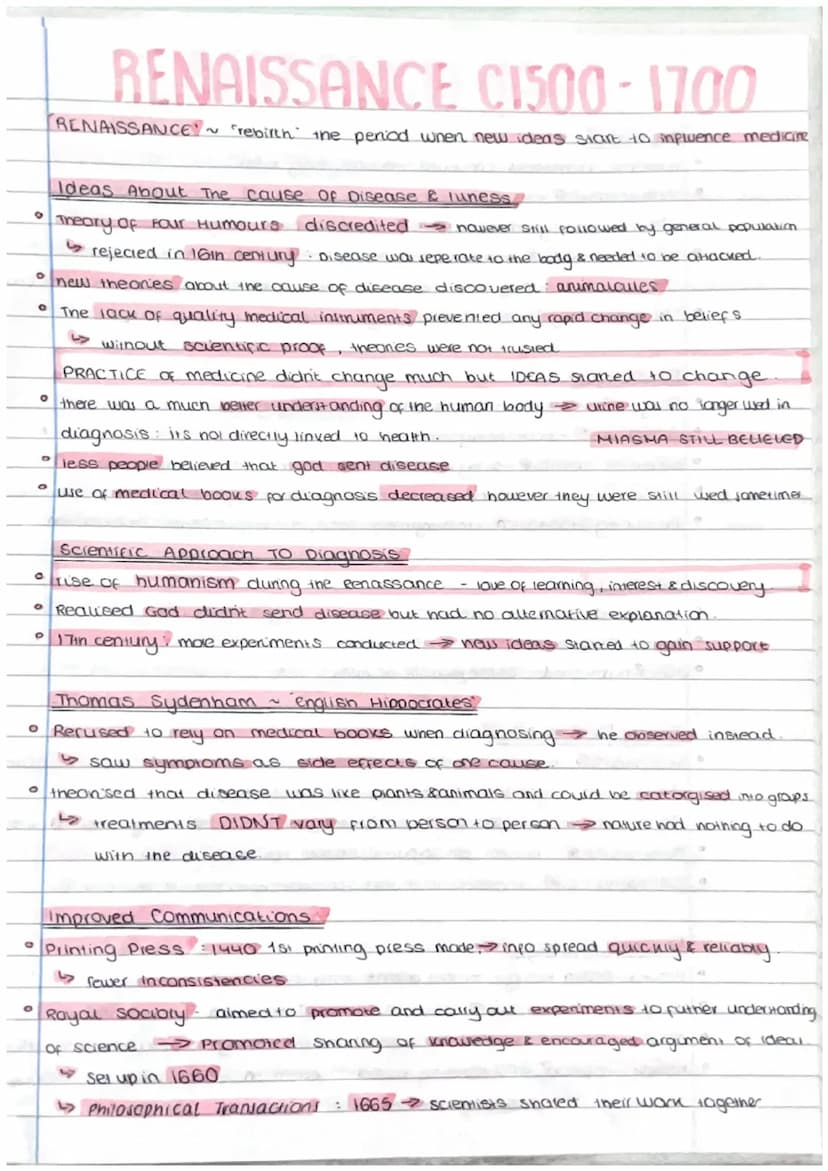 RENAISSANCE C1500-1700
'RENAISSANCE' ~ 'rebirth' the period when new ideas start to influence medicine
Ideas About The Cause Of Disease & Illness
• Theory of Four Humours discredited → however still followed by general population
↳ rejected in 16th century : Disease was seperate to the body & needed to be attacked.
• new theories about the cause of disease discovered : animalcules
• The lack of quality medical instruments prevented any rapid change in beliefs
↳ without scientific proof, theories were not trusted
PRACTICE of medicine didn't change much but IDEAS started to change.
• there was a much better understanding of the human body → urine was no longer used in
diagnosis : its not directly linked to health. MIASMA STILL BELIEVED
• less people believed that god sent disease
• use of medical books for diagnosis decreased however they were still used sometimes
Scientific Approach To Diagnosis
• rise of humanism during the Renassance - love of learning, interest & discovery.
• Realised God didn't send disease but had no alternative explanation.
• 17th century : more experiments conducted → new ideas started to gain support
Thomas Sydenham ~ 'English Hippocrates'
• Refused to rely on medical books when diagnosing → he observed instead.
↳ saw symptoms as side effects of one cause.
• theorised that disease was like plants & animals and could be catorgised into groups
↳ treatments DIDNT vary from person to person → nature had nothing to do
with the disease.
Improved Communications
• Printing Press : 1440 1st printing press made, → info spread quickly & reliably.
↳ fewer inconsistencies
• Royal Sociely - aimed to promote and carry out experiments to futher understanding
of science → Promoted sharing of knowledge & encouraged argument of ideas
↳ Set up in 1660
↳ Philosophical Transactions : 1665 → scientists shared their work together